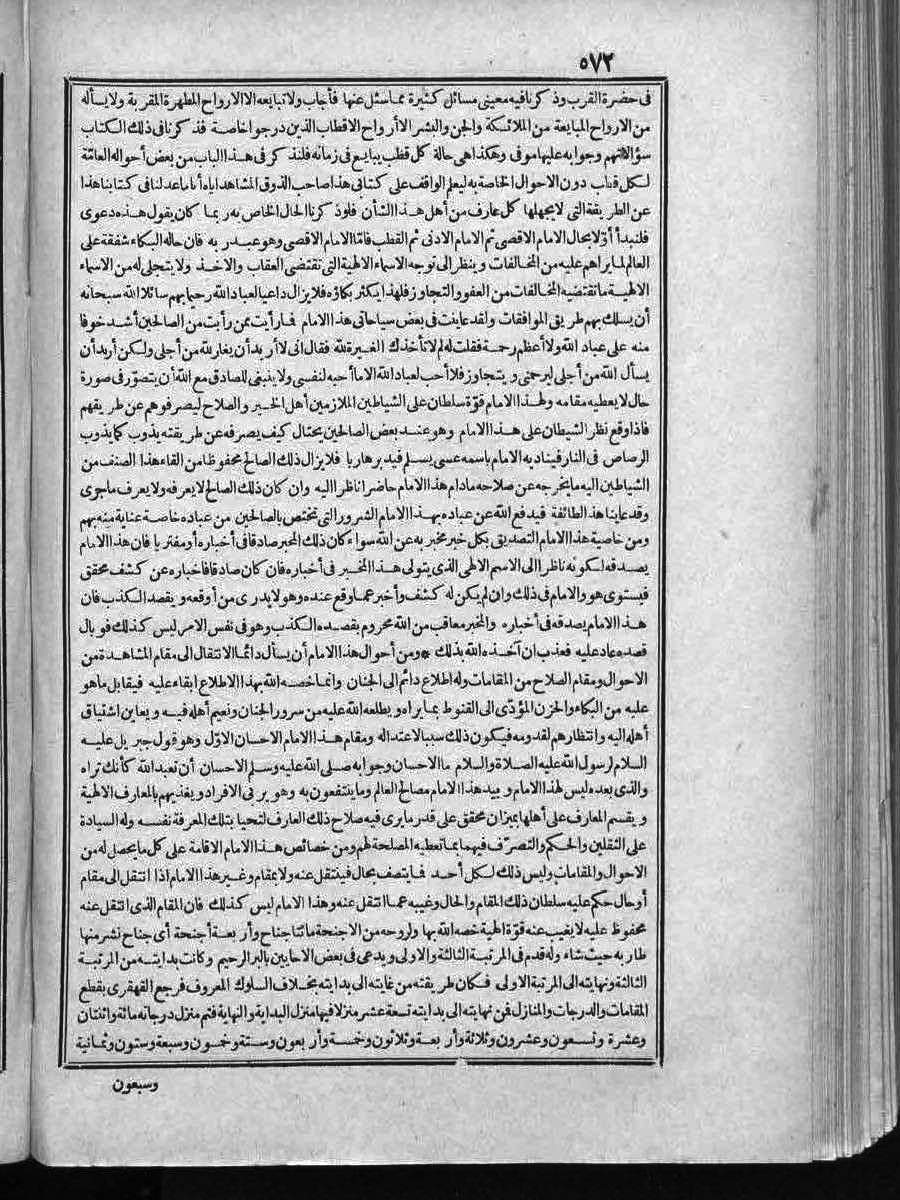 ٥٧٢
فى حضرة القرب وذكرنا فيه معينى مسائل كثيرة مما سئل عنها فأجاب ولا تبايعه الا الارواح المطهرة المقربة ولا يسأله
من الارواح المبايعة من الملائكة والجن والبشر الا أرواح الاقطاب الذين درجوا خاصة فذكرنا فى ذلك الكتاب
سؤالاتهم وجوابه عليها موفى وهكذا هى حالة كل قطب يبايع فى زمانه فلنذكر فى هذا الباب من بعض أحواله العامة
لكل قطب دون الاحوال الخاصة به ليعلم الواقف على كتابى هذا صاحب الذوق المشاهد اياه أنا ما عدلنا فى كتابنا هذا
عن الطريقة التى لا يجهلها كل عارف من أهل هذا الشأن فلو ذكرنا الحال الخاص به ربما كان يقول هذه دعوى
فلنبدأ أوّلا بحال الامام الاقصى ثم الامام الادنى ثم القطب فامّا الامام الاقصى وهو عبد ربه فان حاله البكاء شفقة على
العالم لما يراهم عليه من المخالفات وينظر الى توجه الاسماء الالهية التى تقتضى العقاب والاخذ ولا يتجلى له من الاسماء
الالهية ما تقتضيه المخالفات من العفو والتجاوز فلهذا يكثر بكاؤه فلا يزال داعيا لعباد الله رحيما بهم سائلا الله سبحانه
أن يسلك بهم طريق الموافقات ولقد عاينت فى بعض سياحاتى هذا الامام فما رأيت ممن رأيت من الصالحين أشد خوفا
منه على عباد الله ولا أعظم رحمة فقلت له لم لا تأخذك الغيرة لله فقال انى لا أريد أن يغار لله من أجلى ولكن أريد أن
يسأل الله من أجلى ليرحمنى ويتجاوز فلا أحب لعباد الله الا ما أحبه لنفسى ولا ينبغى للصادق مع الله أن يتصوّر فى صورة
حال لا يعطيه مقامه ولهذا الامام قوّة سلطان على الشياطين الملازمين أهل الخير والصلاح ليصرفوهم عن طريقهم
فاذا وقع نظر الشيطان على هذا الامام وهو عند بعض الصالحين يحتال كيف يصرفه عن طريقته يذوب كما يذوب
الرصاص فى النار فيناديه الامام باسمه عسى يسلم فيدبر هاربا فلا يزال ذلك الصالح محفوظا من القاء هذا الصنف من
الشياطين اليه ما يخرجه عن صلاحه مادام هذا الامام حاضرا ناظرا اليه وان كان ذلك الصالح لا يعرفه ولا يعرف ما جرى
وقد عاينا هذه الطائفة فيدفع الله عن عباده بهذا الامام الشرور التى تختص بالصالحين من عباده خاصة عناية منه بهم
ومن خاصية هذا الامام التصديق بكل خبر مخبر به عن الله سواء كان ذلك المخبر صادقا فى أخباره أو مفتريا فان هذا الامام
يصدقه لكونه ناظرا الى الاسم الالهى الذى يتولى هذا المخبر فى أخباره فان كان صادقا فاخباره عن كشف محقق
فيستوى هو والامام فى ذلك وان لم يكن له كشف وأخبر عما وقع عنده وهو لا يدرى من أوقعه ويقصد الكذب فان
هذا الامام يصدقه فى أخباره والمخبر معاقب من الله محروم بقصده الكذب وهو فى نفس الامر ليس كذلك فوبال
قصده عاد عليه فعذب ان آخذه الله بذلك * ومن أحوال هذا الامام أن يسأل دائما الانتقال الى مقام المشاهدة من
الاحوال ومقام الصلاح من المقامات وله اطلاع دائم الى الجنان وانما خصه الله بهذا الاطلاع ابقاء عليه فيقابل ما هو
عليه من البكاء والحزن المؤدّى الى القنوط بما يراه ويطلعه الله عليه من سرور الجنان ونعيم أهله فيه ويعاين اشتياق
أهله اليه وانتظارهم لقدومه فيكون ذلك سببا لاعتداله ومقام هذا الامام الاحسان الاوّل وهو قول جبريل عليه
السلام لرسول الله عليه الصلاة والسلام ما الاحسان وجوابه صلى الله عليه وسلم الاحسان أن تعبد الله كأنك تراه
والذى بعده ليس لهذا الامام وبيد هذا الامام مصالح العالم وما ينتفعون به وهو يربى الافراد ويغذيهم بالمعارف الالهية
ويقسم المعارف على أهلها بميزان محقق على قدر ما يرى فيه صلاح ذلك العارف لتحيا بتلك المعرفة نفسه وله السيادة
على الثقلين والحكم والتصرّف فيهما بما تعطيه المصلحة لهم ومن خصائص هذا الامام الاقامة على كل ما يحصل له من
الاحوال والمقامات وليس ذلك لكل أحد فما يتصف بحال فينتقل عنه ولا بمقام وغير هذا الامام اذا انتقل الى مقام
أو حال حكم عليه سلطان ذلك المقام والحال وغيبه عما انتقل عنه وهذا الامام ليس كذلك فان المقام الذى انتقل عنه
محفوظ عليه لا يغيب عنه قوّة الهية خصه الله بها ولروحه من الاجنحة مائتا جناح وأربعة أجنحة أى جناح نشر منها
طار به حيث شاء وله قدم فى المرتبة الثالثة والاولى ويدعى فى بعض الاحايين بالبر الرحيم وكانت بدايته من المرتبة
الثالثة ونهايته الى المرتبة الاولى فكان طريقته من غايته الى بدايته بخلاف السلوك المعروف فرجع القهقرى بقطع
المقامات والدرجات والمنازل فمن نهايته الى بدايته تسعة عشر منزلا فيها منزل البداية والنهاية فثم منزل درجاته مائة واثنتان
وعشرة وتسعون وعشرون وثلاثة وأربعة وثلاثون وخمسة وأربعون وستة وخمسون وسبعة وستون وثمانية
وسبعون